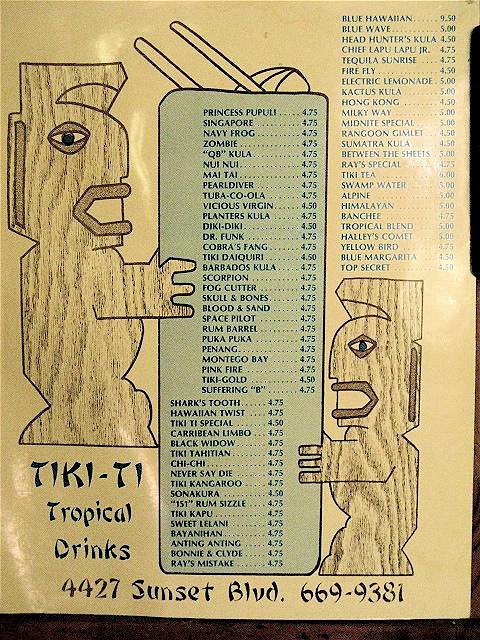 BLUE HAWAIIAN ..... 9.50
BLUE WAVE ..... 5.00
HEAD HUNTER'S KULA 4.50
CHIEF LAPU LAPU JR. 4.75
TEQUILA SUNRISE .... 4.75
FIRE FLY ..... 4.50
ELECTRIC LEMONADE 5.00
KACTUS KULA ..... 5.00
HONG KONG ..... 4.50
MILKY WAY ..... 5.00
MIDNITE SPECIAL .... 5.00
RANGOON GIMLET .. 4.50
SUMATRA KULA .... 4.50
BETWEEN THE SHEETS 5.00
RAY'S SPECIAL ..... 4.75
TIKI TEA ..... 6.00
SWAMP WATER ..... 5.00
ALPINE ..... 5.00
HIMALAYAN ..... 5.00
BANCHEE ..... 4.75
TROPICAL BLEND .... 5.00
HALLEY'S COMET .... 5.00
YELLOW BIRD ..... 4.75
BLUE MARGARITA ... 4.50
TOP SECRET ..... 4.50
PRINCESS PUPULI ..... 4.75
SINGAPORE ..... 4.75
NAVY FROG ..... 4.75
ZOMBIE ..... 4.75
"QB" KULA ..... 4.75
NUI NUI ..... 4.75
MAI TAI ..... 4.75
PEARLDIVER ..... 4.75
TUBA-CO-OLA ..... 4.75
VICIOUS VIRGIN ..... 4.50
PLANTERS KULA ..... 4.75
DIKI-DIKI ..... 4.50
DR. FUNK ..... 4.75
COBRA'S FANG ..... 4.75
TIKI DAIQUIRI ..... 4.50
BARBADOS KULA ..... 4.75
SCORPION ..... 4.75
FOG CUTTER ..... 4.75
SKULL & BONES ..... 4.75
BLOOD & SAND ..... 4.75
SPACE PILOT ..... 4.75
RUM BARREL ..... 4.75
PUKA PUKA ..... 4.75
PENANG ..... 4.75
MONTEGO BAY ..... 4.75
PINK FIRE ..... 4.75
TIKI-GOLD ..... 4.50
SUFFERING "B" ..... 4.75
SHARK'S TOOTH ..... 4.75
HAWAIIAN TWIST .... 4.75
TIKI TI SPECIAL ..... 4.50
CARRIBEAN LIMBO ... 4.75
BLACK WIDOW ..... 4.75
TIKI TAHITIAN ..... 4.75
CHI-CHI ..... 4.75
NEVER SAY DIE ..... 4.75
TIKI KANGAROO .... 4.75
SONAKURA ..... 4.50
"151" RUM SIZZLE .... 4.75
TIKI KAPU ..... 4.75
SWEET LELANI ..... 4.75
BAYANIHAN ..... 4.75
ANTING ANTING .... 4.75
BONNIE & CLYDE .... 4.75
RAY'S MISTAKE ..... 4.75
TIKI-TI
Tropical
Drinks
4427 Sunset Blvd. 669-9381